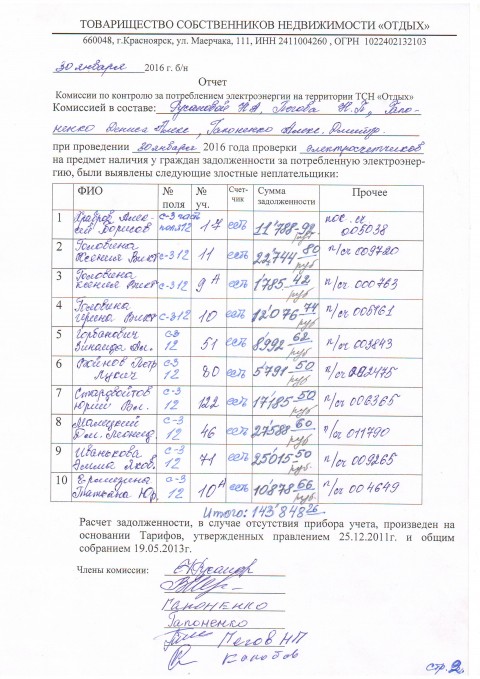 ТОВАРИЩЕСТВО СОБСТВЕННИКОВ НЕДВИЖИМОСТИ «ОТДЫХ»
660048, г.Красноярск, ул. Маерчака, 111, ИНН 2411004260 , ОГРН 1022402132103
30 января 2016 г. б/н
Отчет
Комиссии по контролю за потреблением электроэнергии на территории ТСН «Отдых»
Комиссией в составе: Русановой Н.А, Пегова Н.П, Гапо-
ненко Дениса Алекс, Гапоненко Алекс. Дмитр.
при проведении 30 января 2016 года проверки электросчетчиков
на предмет наличия у граждан задолженности за потребленную электроэнер-
гию, были выявлены следующие злостные неплательщики:
ФИО № поля № уч. Счет-чик Сумма задолженности Прочее
1 Храбров Алексей Борисов с-3 часть поля 12 17 есть 11'788-92 руб пос. сч. 005038
2 Головина Ксения Викт с-3 12 11 есть 22'744-80 руб п/сч 009720
3 Головина Ксения Викт с-3 12 9А есть 1'785-42 руб п/сч 000763
4 Головина Ирина Викт с-3 12 10 есть 12'076-74 руб п/сч 005161
5 Горбанович Зинаида Ал. с-3 12 51 есть 8'992-62 руб п/сч 003843
6 Войнов Петр Лукич с-3 12 80 есть 5'791-50 руб п/сч 002475
7 Старовойтов Юрий Вл. с-3 12 122 есть 17'185-50 руб п/сч 006365
8 Малецкий Вл. Леонид. с-3 12 46 есть 27'588-60 руб п/сч 011790
9 Иванькова Эмма Яков. с-3 12 71 есть 25'015-50 руб п/сч 009265
10 Ермизина Татьяна Юр. с-3 12 10А есть 10'878-66 руб. п/сч 004649
Итого: 143'848 26
Расчет задолженности, в случае отсутствия прибора учета, произведен на
основании Тарифов, утвержденных правлением 25.12.2011г. и общим
собранием 19.05.2013г.
Члены комиссии:
Гапоненко
Гапоненко
Пегов НП
Коротов
стр. 2